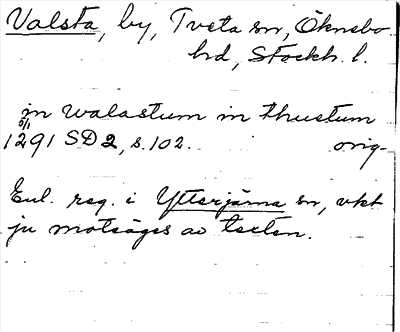 Valsta, by, Tveta sn, Öknebo
hd, Stockh. l.
in walastum in thustum
5/11
1291 SD 2, s. 102. orig.
Enl. reg. i Ytterjärna sn, vkt
ju motsäges av texten.